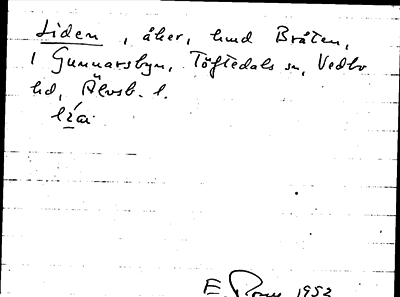 Liden, åker, hmd Bråten,
1 Gunnarsbyn, Töftedals sn, Vedbo
hd, Älvsb. l.
E. 1952